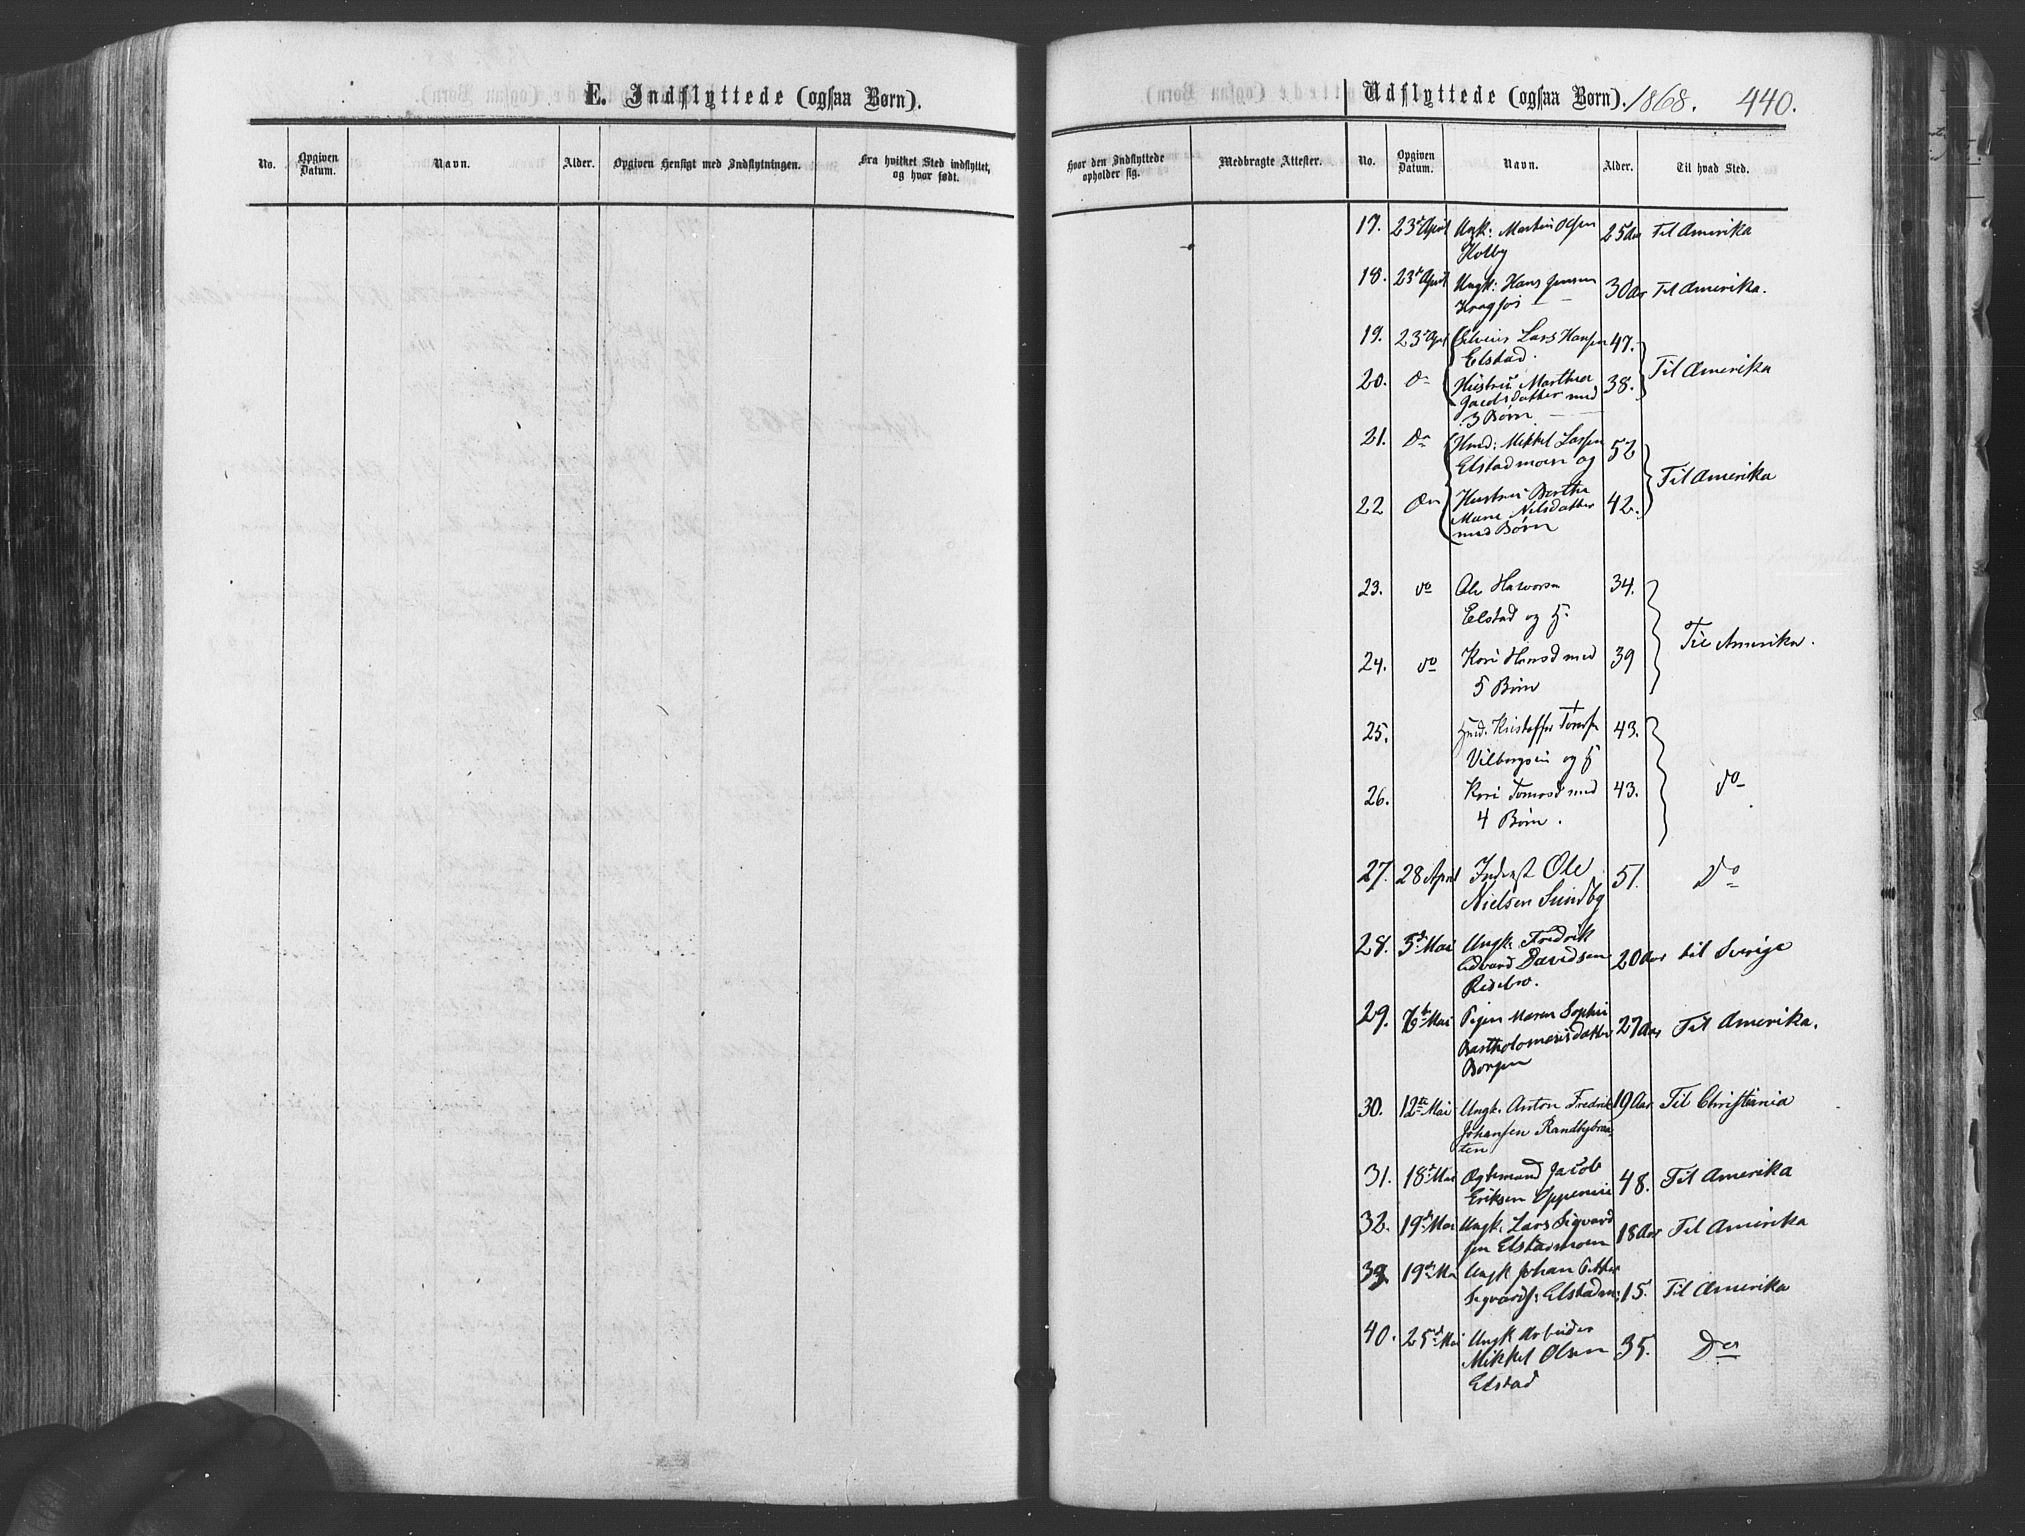 E. Indflyttede (ogsaa Børn).
No.
Opgiven Datum.
Navn.
Alder.
Opgiven Hensigt med Indflytningen.
Fra hvilket Sted indflyttet, og hvor født.
Hvor den Indflyttede opholder sig.
Medbragte Attester.
Udflyttede (ogsaa Børn). 1868. 440.
No.
Opgiven Datum.
Navn.
Alder.
Til hvad Sted.
17. 23d April Ungk: Martin Olsen 25 Aar Til Amerika
Holby
18. 23d April Ungk: Hans Jensen 30 Aar Til Amerika.
19. 23d April Lars Hansen 47.
Elstad.
20. Do Hustru Marthea 38. Til Amerika
med
3 Børn
21. Do Hmd: Mikkel Larsen 52
Elstadmoen og
Til Amerika
22 Do Hustru Bertha 42.
Marie Nilsdatter
med Børn
23. do Ole Halvorsen 34.
Elstad og H.
Til Amerika.
24. do Kari Hansd med 39
5 Børn
25. Hmd. Kristoffer 43.
og H
do
26. Kari med 43.
4 Børn.
27. 28 April Inderst Ole 51. Do
Nielsen Sundby
28. 5d Mai Ungk: Fredrik
Edvard Davidsen 20 Aar til Sverige
29. Mai Pigen Maren Sophie 27 Aar Til Amerika.
Bartholomeusdatter
Borgen
30. 12te Mai Ungk. Anton Fredrik 19 Aar Til Christiania
Johansen Randbybraa-
ten
31. 18d Mai Jacob 48. Til Amerika
Eriksen
32. 19d Mai Ungk. Lars Sigvard 18 Aar Til Amerika
sen Elstadmoen
39. 19d Mai Ungk Johan Petter
Sigvards: Elstadm: 15. Til Amerika
40. 25d Mai Ungk Arbeider
Mikkel Olsen 35. Do
Elstad